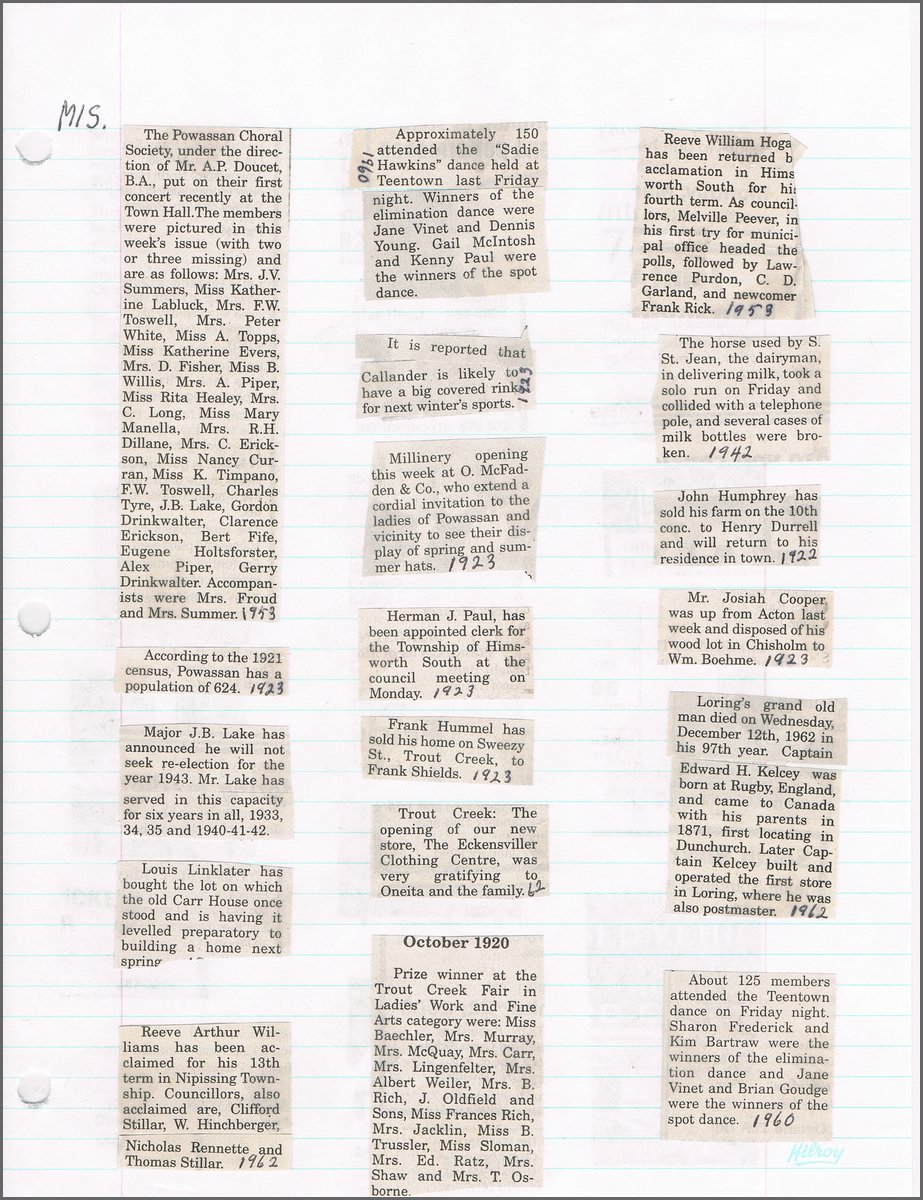 MIS.
The Powassan Choral
Society, under the direc-
tion of Mr. A.P. Doucet,
B.A., put on their first
concert recently at the
Town Hall.The members
were pictured in this
week's issue (with two
or three missing) and
are as follows: Mrs. J.V.
Summers, Miss Kather-
ine Labluck, Mrs. F.W.
Toswell, Mrs. Peter
White, Miss A. Topps,
Miss Katherine Evers,
Mrs. D. Fisher, Miss B.
Willis, Mrs. A. Piper,
Miss Rita Healey, Mrs.
C. Long, Miss Mary
Manella, Mrs. R.H.
Dillane, Mrs. C. Erick-
son, Miss Nancy Cur-
ran, Miss K. Timpano,
F.W. Toswell, Charles
Tyre, J.B. Lake, Gordon
Drinkwalter, Clarence
Erickson, Bert Fife,
Eugene Holtsforster,
Alex Piper, Gerry
Drinkwalter. Accompan-
ists were Mrs. Froud
and Mrs. Summer. 1953
According to the 1921
census, Powassan has a
population of 624. 1923
Major J.B. Lake has
announced he will not
seek re-election for the
year 1943. Mr. Lake has
served in this capacity
for six years in all, 1933,
34, 35 and 1940-41-42.
Louis Linklater has
bought the lot on which
the old Carr House once
stood and is having it
levelled preparatory to
building a home next
spring
Reeve Arthur Wil-
liams has been ac-
claimed for his 13th
term in Nipissing Town-
ship. Councillors, also
acclaimed are, Clifford
Stillar, W. Hinchberger,
Nicholas Rennette and
Thomas Stillar. 1962
Approximately 150
attended the "Sadie
Hawkins" dance held at
Teentown last Friday
night. Winners of the
elimination dance were
Jane Vinet and Dennis
Young. Gail McIntosh
and Kenny Paul were
the winners of the spot
dance.
1960
It is reported that
Callander is likely to
have a big covered rink
for next winter's sports.
1923
Millinery opening
this week at O. McFad-
den & Co., who extend a
cordial invitation to the
ladies of Powassan and
vicinity to see their dis-
play of spring and sum-
mer hats. 1923
Herman J. Paul, has
been appointed clerk for
the Township of Hims-
worth South at the
council meeting on
Monday. 1923
Frank Hummel has
sold his home on Sweezy
St., Trout Creek, to
Frank Shields. 1923
Trout Creek: The
opening of our new
store, The Eckensviller
Clothing Centre, was
very gratifying to
Oneita and the family. 62
October 1920
Prize winner at the
Trout Creek Fair in
Ladies' Work and Fine
Arts category were: Miss
Baechler, Mrs. Murray,
Mrs. McQuay, Mrs. Carr,
Mrs. Lingenfelter, Mrs.
Albert Weiler, Mrs. B.
Rich, J. Oldfield and
Sons, Miss Frances Rich,
Mrs. Jacklin, Miss B.
Trussler, Miss Sloman,
Mrs. Ed. Ratz, Mrs.
Shaw and Mrs. T. Os-
borne.
Reeve William Hoga
has been returned b
acclamation in Hims
worth South for his
fourth term. As council-
lors, Melville Peever, in
his first try for munici-
pal office headed the
polls, followed by Law-
rence Purdon, C. D.
Garland, and newcomer
Frank Rick. 1953
The horse used by S.
St. Jean, the dairyman,
in delivering milk, took a
solo run on Friday and
collided with a telephone
pole, and several cases of
milk bottles were bro-
ken. 1942
John Humphrey has
sold his farm on the 10th
conc. to Henry Durrell
and will return to his
residence in town. 1922
Mr. Josiah Cooper
was up from Acton last
week and disposed of his
wood lot in Chisholm to
Wm. Boehme. 1923
Loring's grand old
man died on Wednesday,
December 12th, 1962 in
his 97th year. Captain
Edward H. Kelcey was
born at Rugby, England,
and came to Canada
with his parents in
1871, first locating in
Dunchurch. Later Cap-
tain Kelcey built and
operated the first store
in Loring, where he was
also postmaster. 1962
About 125 members
attended the Teentown
dance on Friday night.
Sharon Frederick and
Kim Bartraw were the
winners of the elimina-
tion dance and Jane
Vinet and Brian Goudge
were the winners of the
spot dance. 1960
Hilroy